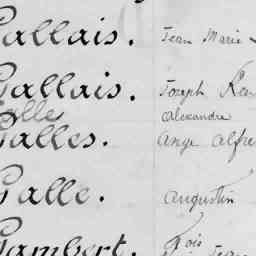 Gallais. Jean Marie
Gallais. Joseph
Galle Alexandre
Galles. Ange Alfre
Galle. Augustin
Gambert. Fois
Jean